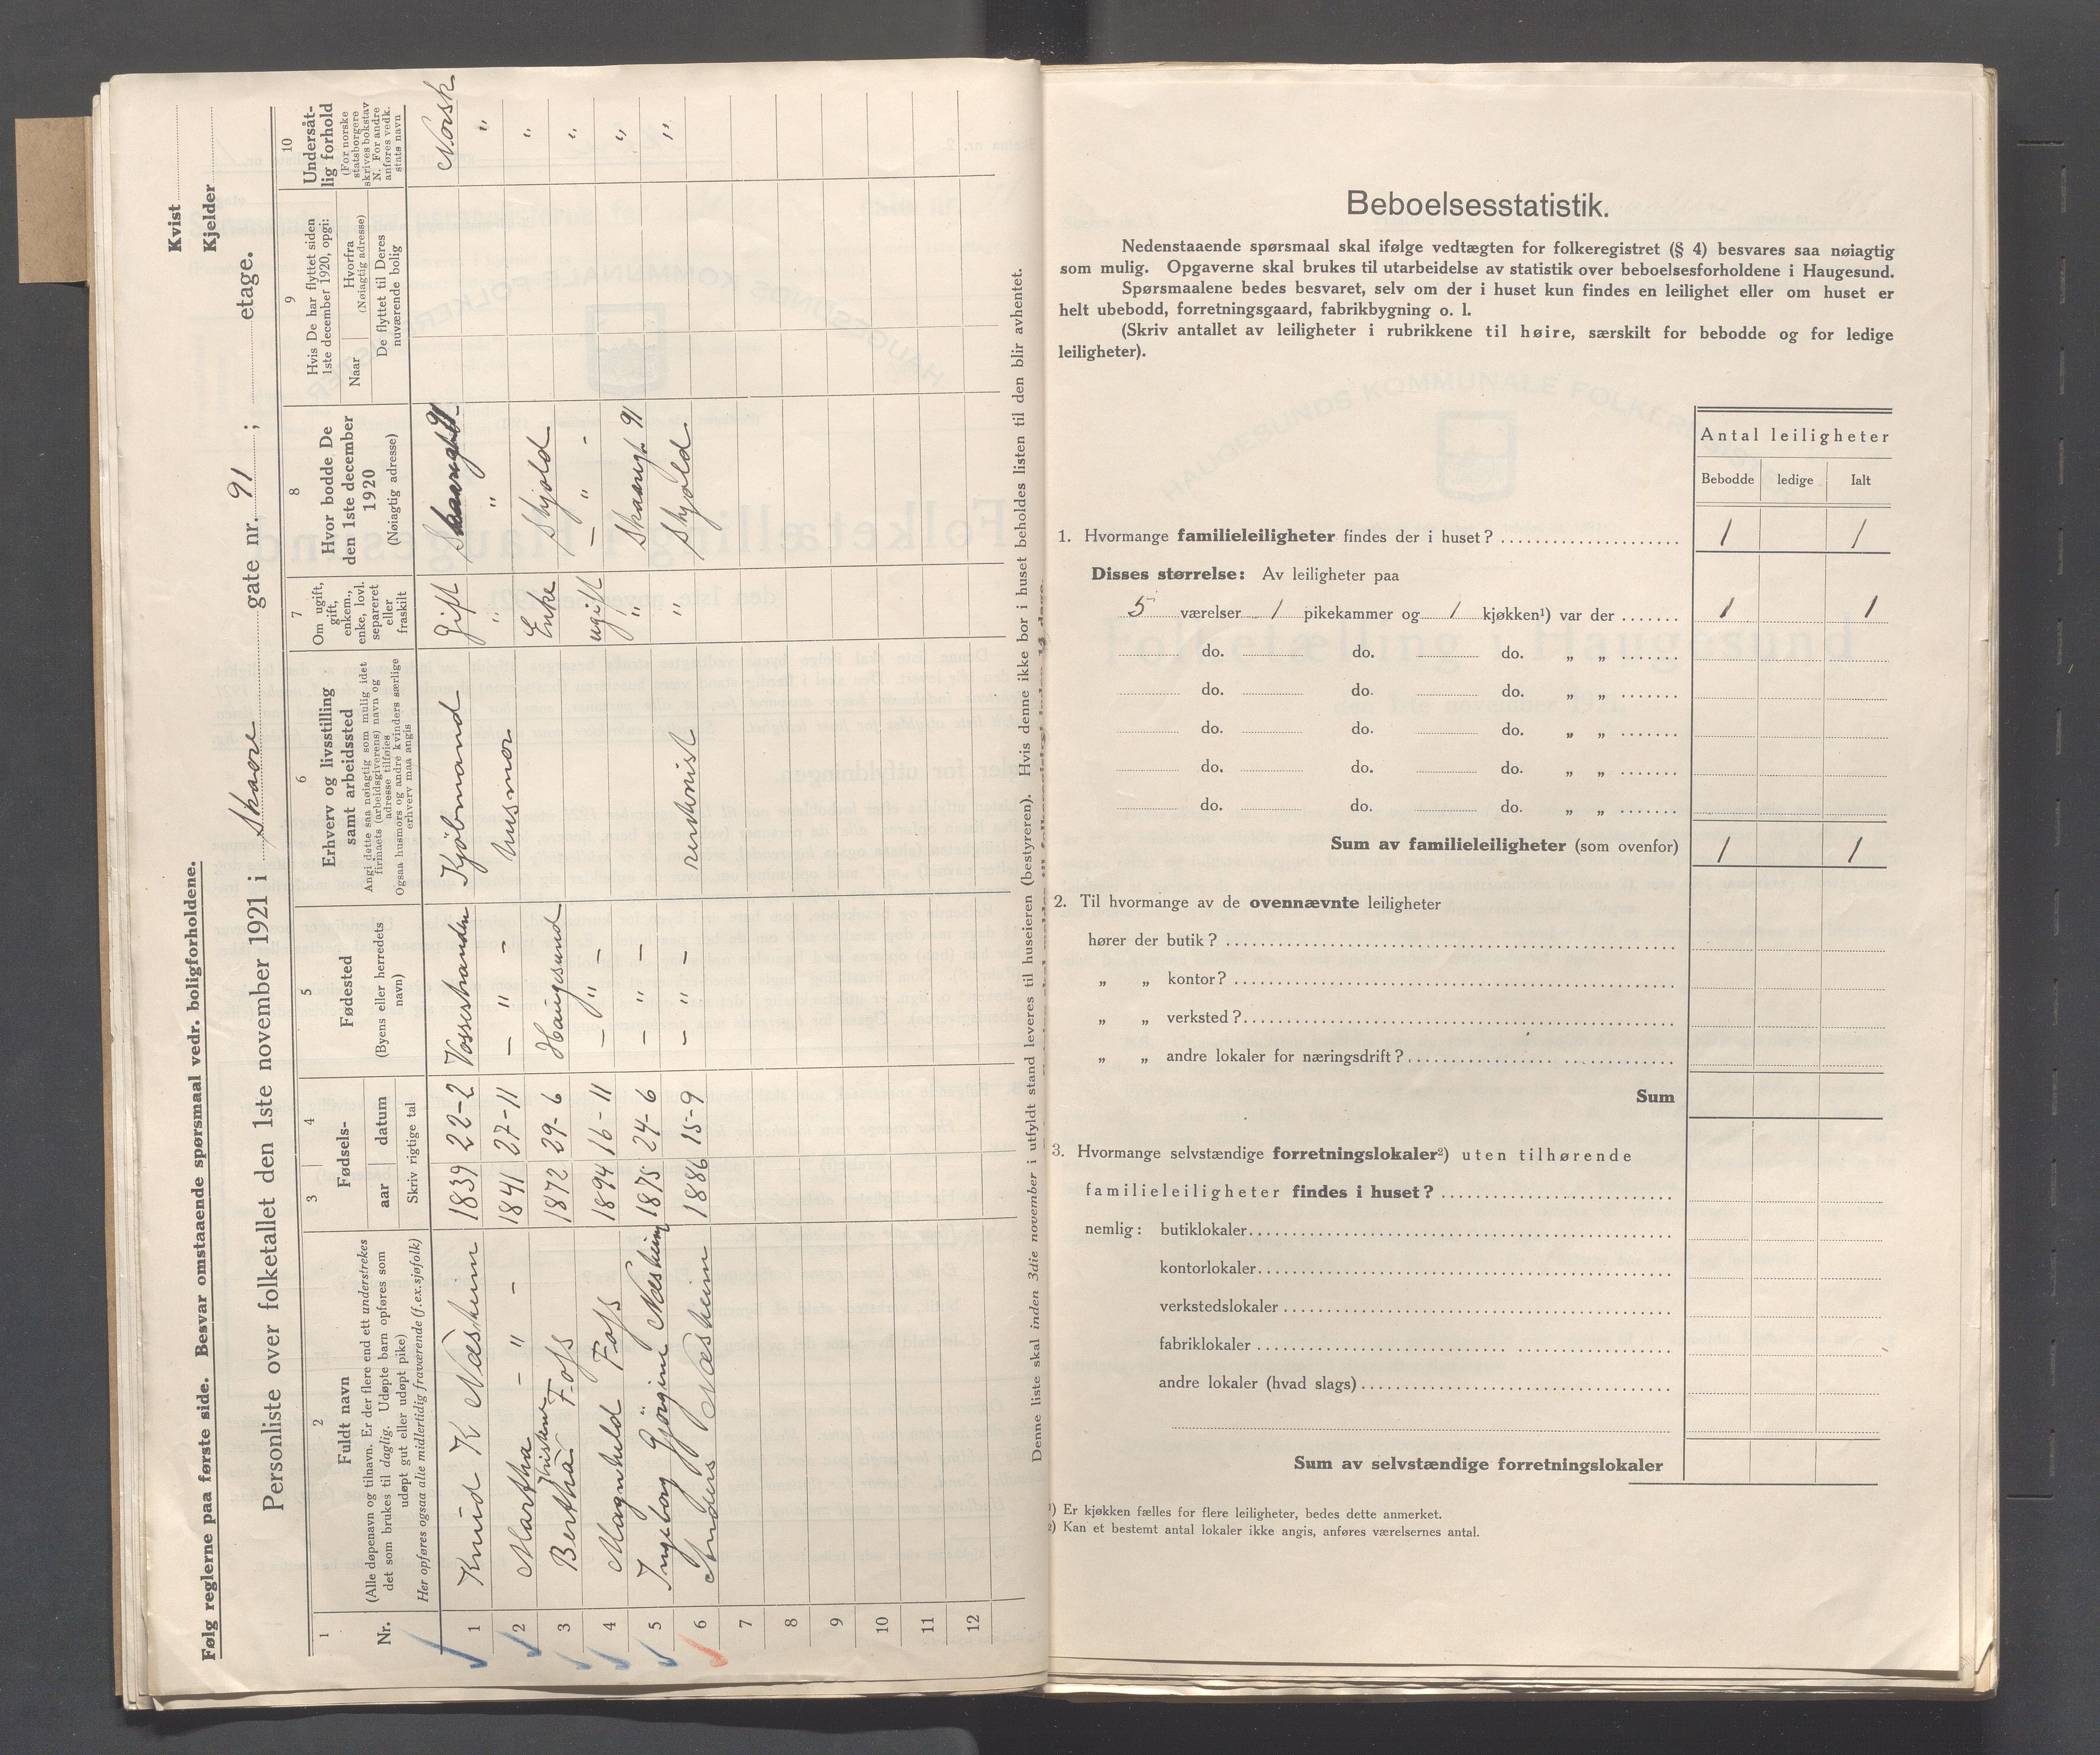 Følg reglerne paa første side. Besvar omstaaende spørsmaal vedr. boligforholdene.
Kvist
Kjelder
Personliste over folketallet den 1ste november 1921 i Skaare gate nr. 91 ; etage.
1 2 3 4 5 6 7 8 9 10
Nr.
Fuldt navn
(Alle døpenavn og tilnavn. Er der flere end ett understrekes
det som brukes til daglig. Udøpte barn opføres som
udøpt gut eller udøpt pike)
Her opføres ogsaa alle midlertidig fraværende (f.ex.sjøfolk)
Fødsels-
aar datum
Skriv rigtige tal
Fødested
(Byens eller herredets
navn)
Erhverv og livsstilling
samt arbeidssted
Angi dette saa nøiagtig som mulig idet
firmaets (arbeidsgiverens) navn og
adresse tilføies
Ogsaa husmors og andre kvinders særlige
erhverv maa angis
Om ugift,
gift,
enkem.,
enke, lovl.
separeret
eller
fraskilt
Hvor bodde De
den 1ste december
1920
(Nøiagtig adresse)
Hvis De har flyttet siden
1ste december 1920, opgi:
Naar
Hvorfra
(Nøiagtig adresse)
De flyttet til Deres
nuværende bolig
Undersåt-
lig forhold
(For norske
statsborgere
skrives bokstav
N. For andre
anføres vedk.
stats navn
1 Knud K Næsheim 1839 22-2 Vossestranden Kjøbmand gift 91 Norsk
2 Martha - " - 1841 27-11 - " - husmor " " "
3 Bertha Foss 1872 29-6 Haugesund Enke Skjold "
4 Magnhild Foss 1894 16-11 - " - ugift - " - "
5 Ingeborg Næsheim 1875 24-6 - " - " Skaaregt. 91 "
6 Anders Næsheim 1886 15-9 - " - rentenist " Skjold "
7
8
9
10
11
12
Denne liste skal inden 3die november i utfyldt stand leveres til huseieren (bestyreren). Hvis denne ikke bor i huset beholdes listen til den blir avhentet.
Beboelsesstatistik.
Nedenstaaende spørsmaal skal ifølge vedtægten for folkeregistret (§ 4) besvares saa nøiagtig
som mulig. Opgaverne skal brukes til utarbeidelse av statistik over beboelsesforholdene i Haugesund.
Spørsmaalene bedes besvaret, selv om der i huset kun findes en leilighet eller om huset er
helt ubebodd, forretningsgaard, fabrikbygning o. l.
(Skriv antallet av leiligheter i rubrikkene til høire, særskilt for bebodde og for ledige
leiligheter).
Antal leiligheter
Bebodde ledige Ialt
1. Hvormange familieleiligheter findes der i huset? 1 1
Disses størrelse: Av leiligheter paa
5 værelser 1 pikekammer og 1 kjøkken¹) var der 1 1
do. do. do. „ „
do. do. do. „ „
do. do. do. „ „
do. do. do. „ „
do. do. do. „ „
Sum av familieleiligheter (som ovenfor) 1 1
2. Til hvormange av de ovennævnte leiligheter
hører der butik?
„ „ kontor?
„ „ verksted?
„ „ andre lokaler for næringsdrift?
Sum
3. Hvormange selvstændige forretningslokaler²) uten tilhørende
familieleiligheter findes i huset?
nemlig: butiklokaler
kontorlokaler
verkstedslokaler
fabriklokaler
andre lokaler (hvad slags)
Sum av selvstændige forretningslokaler
¹) Er kjøkken fælles for flere leiligheter, bedes dette anmerket.
²) Kan et bestemt antal lokaler ikke angis, anføres værelsernes antal.